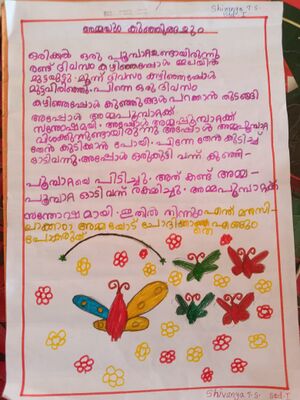 Shivanya T.S.
Std I
അമ്മയും കുഞ്ഞുങ്ങളും
ഒരിക്കൽ ഒരു പൂമ്പാറ്റയുണ്ടായിരുന്നു
രണ്ട് ദിവസം കഴിഞ്ഞപ്പോൾ
മുട്ടയിട്ടു. മൂന്ന് ദിവസം കഴിഞ്ഞപ്പോൾ
മുട്ടവിരിഞ്ഞു. പിന്നെ ഒരു ദിവസം
കഴിഞ്ഞപ്പോൾ കുഞ്ഞുങ്ങൾ പറക്കാൻ തുടങ്ങി
അപ്പോൾ അമ്മപൂമ്പാറ്റക്ക്
സന്തോഷമായി. അപ്പോൾ അമ്മപൂമ്പാറ്റക്ക്
വിശക്കുന്നുണ്ടായിരുന്നു അപ്പോൾ അമ്മപൂമ്പാറ്റ
തേൻ കുടിക്കാൻ പോയി. പിന്നേ തേൻ കുടിച്ച്
ഓടിവന്നു. അപ്പോൾ ഒരുകുട്ടി വന്ന് കുഞ്ഞി-
പൂമ്പാറ്റയെ പിടിച്ചു. അത് കണ്ട് അമ്മ-
പൂമ്പാറ്റ ഓടി വന്ന് രക്ഷിച്ചു. അമ്മപൂമ്പാറ്റക്ക്
സന്തോഷമായി. ഇതിൽ നിന്നും എന്ത് മനസി-
ലാക്കാം അമ്മയോട് ചോദിക്കാതെ എങ്ങും
പോകരുത്
Shivanya T.S. Std. I